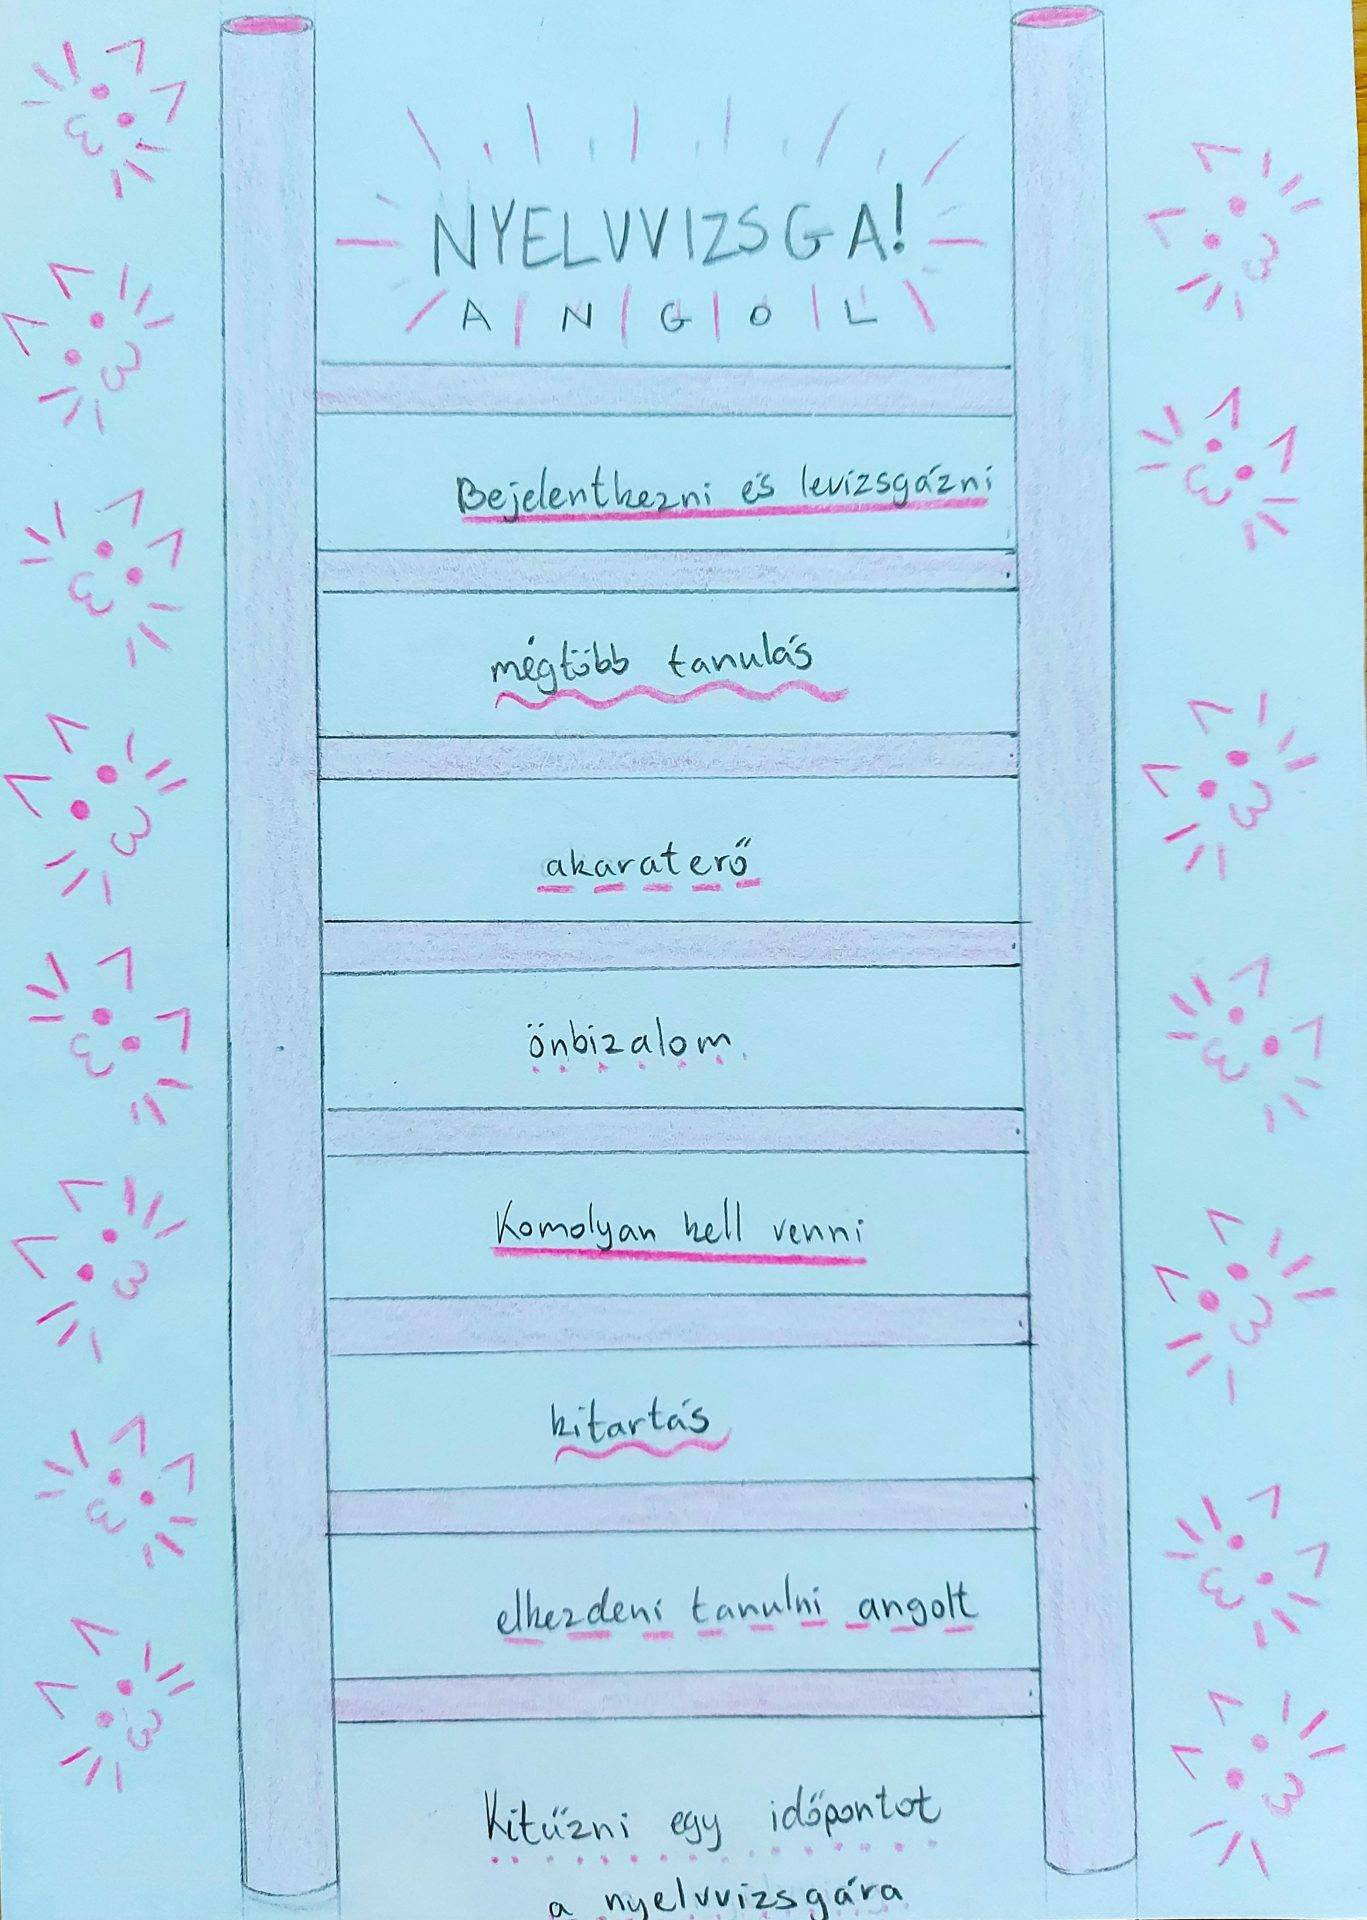 NYELVVIZSGA!
ANGOL
Bejelentkezni és levizsgázni
mégtöbb tanulás
akaraterő
önbizalom
Komolyan kell venni
kitartás
elkezdeni tanulni angolt
Kitűzni egy időpontot
a nyelvvizsgára